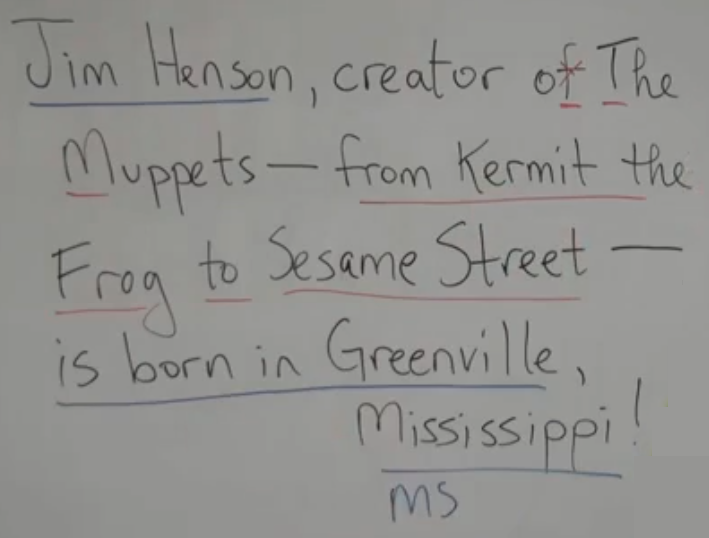 Jim Henson, creator of The
Muppets — from Kermit the
Frog to Sesame Street —
is born in Greenville,
Mississippi!
MS